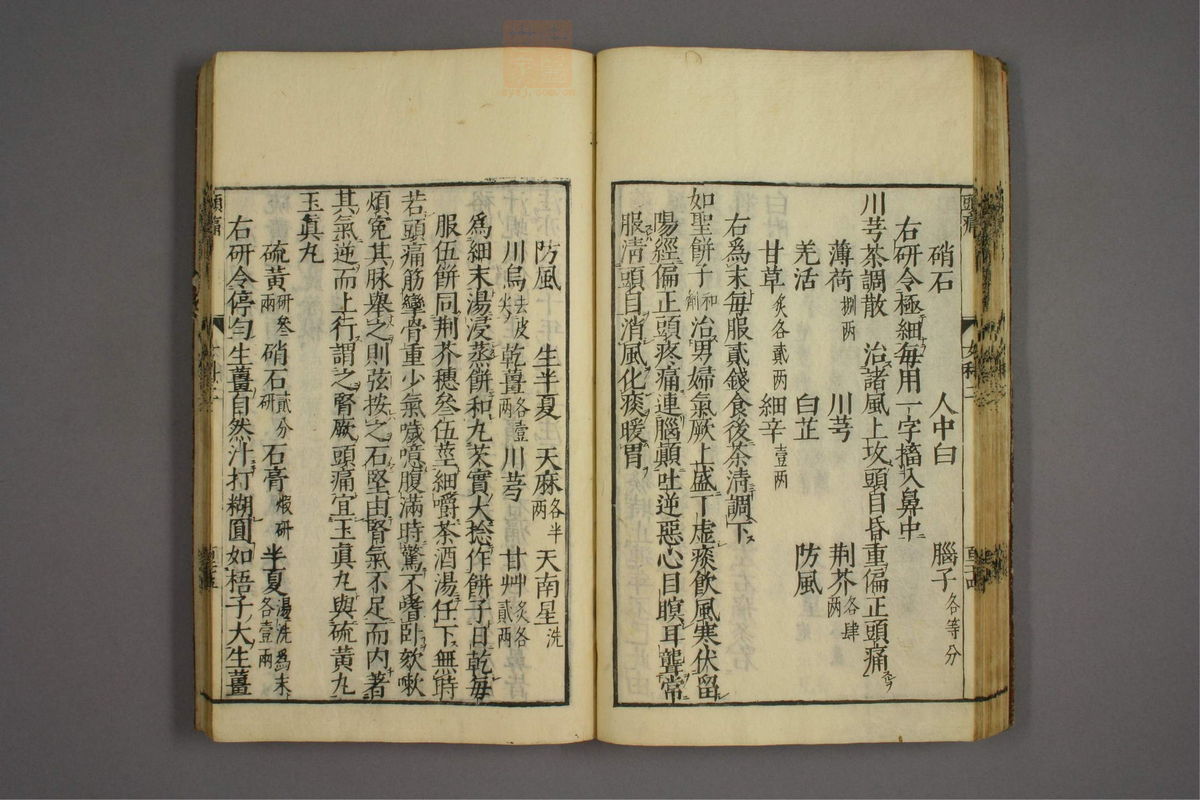 硝石　人中白　腦子各等分
右研令極細每用一字搐入鼻中
川芎茶調散　治諸風上攻頭目昏重偏正頭痛
薄荷捌两　川芎　荆芥各肆两
羌活　白芷　防風
甘草炙各貳两　細辛壹两
右爲末每服貳錢食後茶清調下
如聖餅子和劑　治男婦氣厥上盛下虛痰飲風寒伏留
陽經偏正頭疼痛連腦顚吐逆惡心目瞑耳聾常
服清頭目消風化痰暖胃
防風　生半夏　天麻各半两　天南星洗
川烏去皮尖　乾薑各壹两　川芎　甘艸炙各貳两
爲細末湯浸蒸餅和丸芡實大捻作餅子日乾每
服伍餅同荆芥穗叁伍莖細嚼茶酒湯任下無時
若頭痛筋攣骨重少氣噦噫腹滿時驚不嗜卧欬嗽
煩寃其脉舉之則弦按之石堅由腎氣不足而内著
其氣逆而上行謂之腎厥頭痛宜玉眞丸與硫黄丸
玉眞丸
硫黄研叁兩　硝石貳分研　石膏煅研　半夏湯洗爲末各壹兩
右研令停勻生薑自然汁打糊圓如梧子大生薑
頭痛
女科二
頭痛